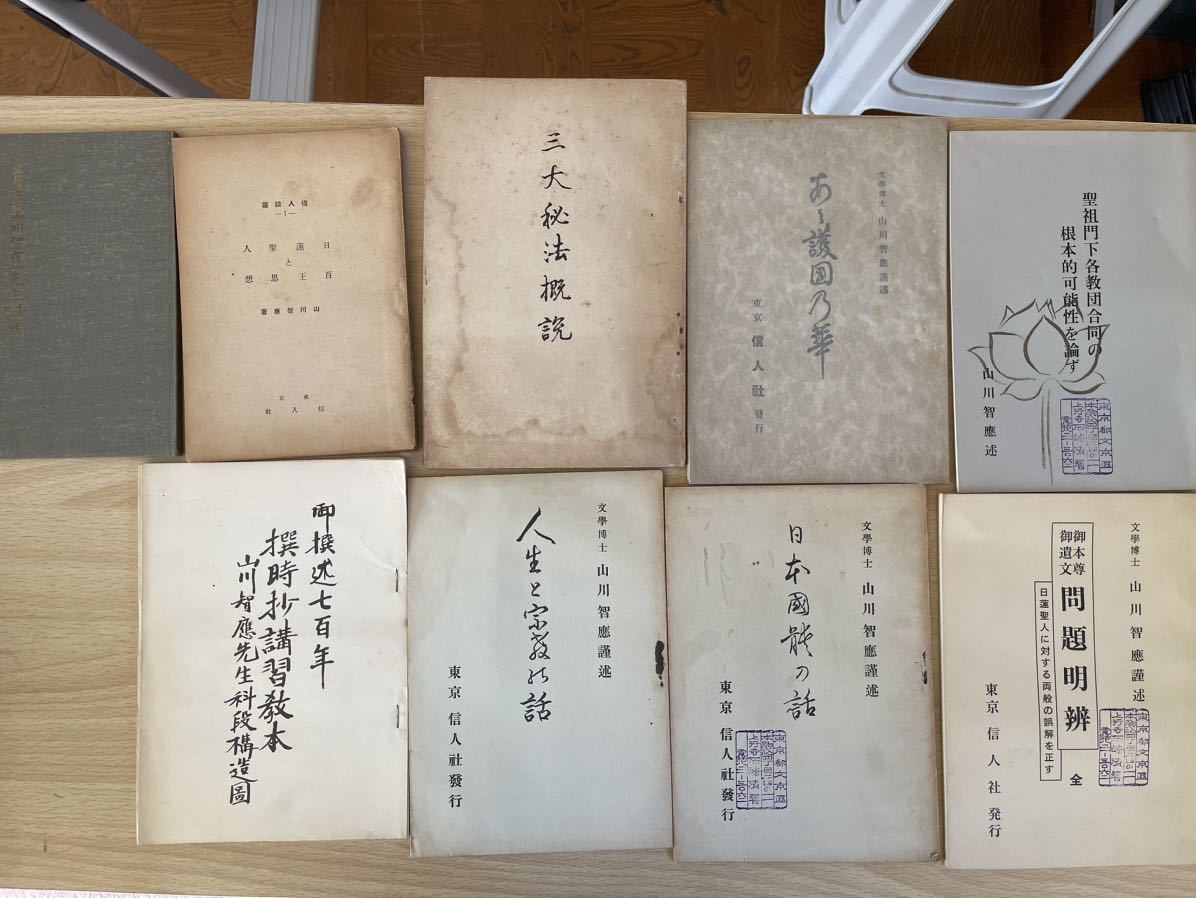 信人論叢
―1―
日蓮聖人
と
百王思想
山川智應著
東京
信人社
三大秘法概説
文學博士 山川智應謹述
あゝ護国乃華
東京 信人社發行
聖祖門下各教団合同の
根本的可能性を論ず
山川智應述
東京都文京區
御撰述七百年
撰時抄講習教本
山川智應先生科段構造圖
文學博士 山川智應謹述
人生と宗教の話
東京 信人社發行
文學博士 山川智應謹述
日本國體の話
東京 信人社發行
東京都文京區
文學博士 山川智應謹述
御本尊
御遺文
問題明辨 全
日蓮聖人に対する両般の誤解を正す
東京 信人社発行
東京都文京區